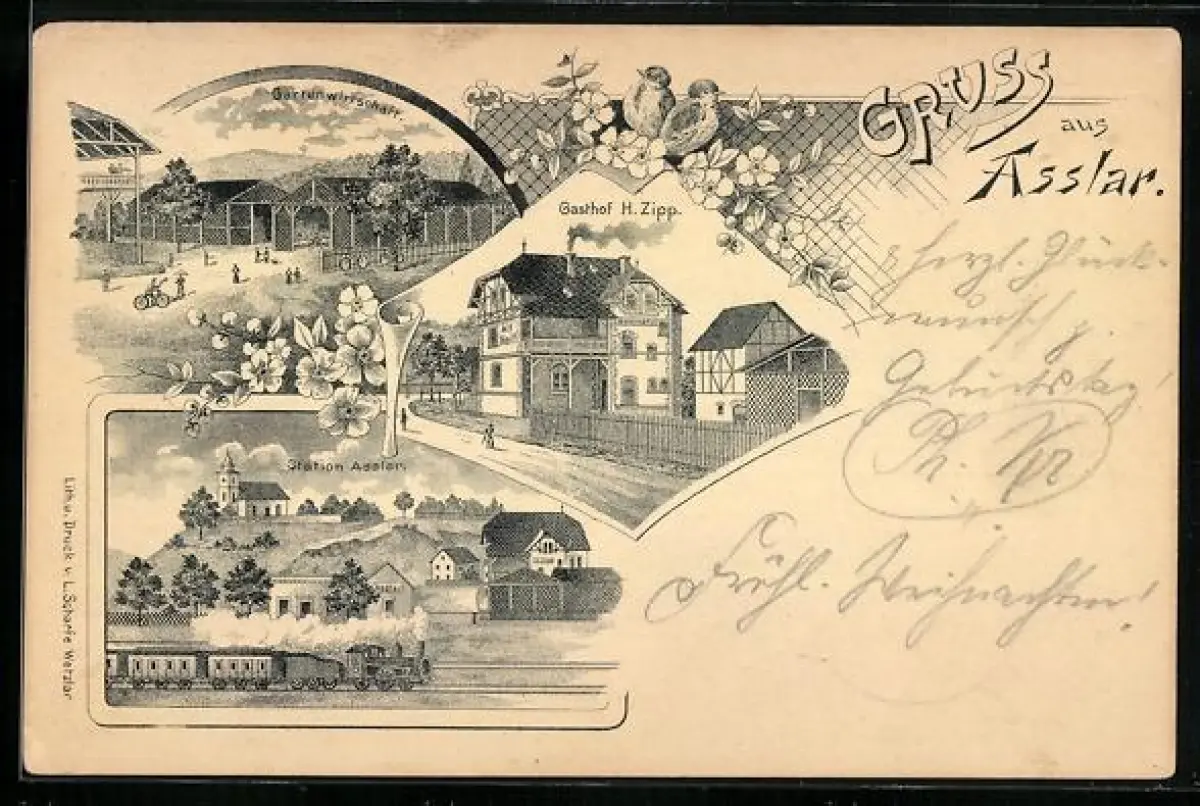 Gartenwirtschaft.
GRUSS
aus
Asslar.
Gasthof H. Zipp.
herzl. Glück-
wunsch z.
Geburtstag!
Ph.
Fröhl. Weihnachten!
Station Asslar.
Lith. u. Druck v. L. Scharfe Wetzlar